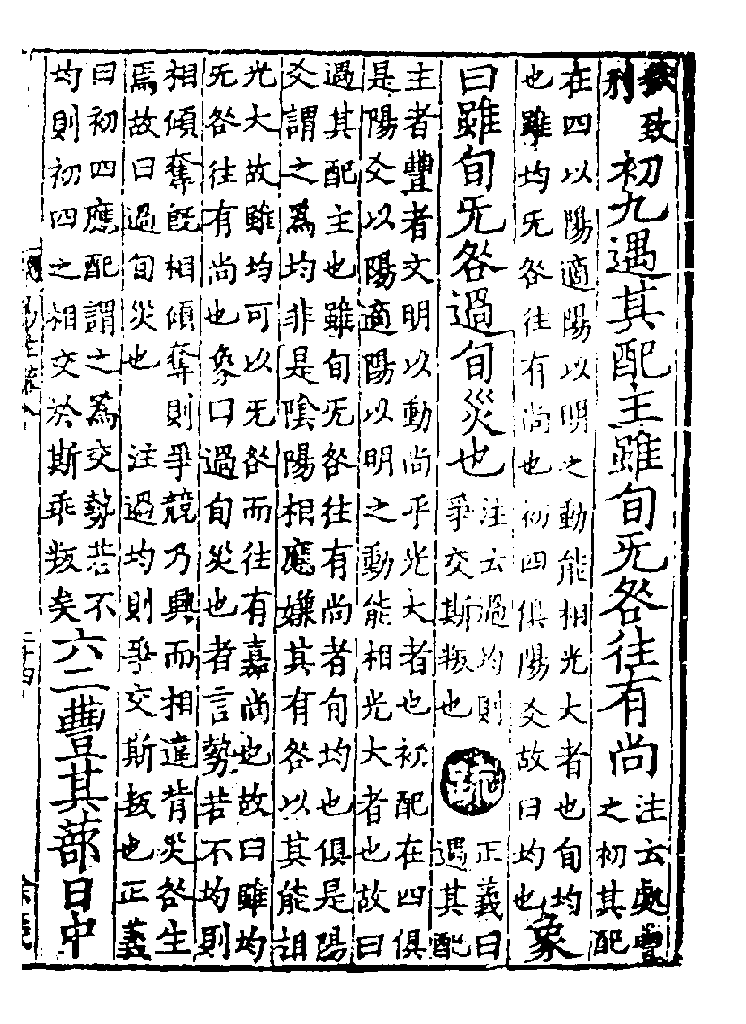 獄致
刑
初九遇其配主雖旬无咎往有尚
注云處豐
之初其配
在四以陽適陽以明之動能相光大者也旬均
也雖均无咎往有尚也初四俱陽爻故曰均也
象
曰雖旬无咎過旬災也
注云過均則
爭交斯叛也
疏
正義曰
遇其配
主者豐者文明以動尚乎光大者也初配在四俱
是陽爻以陽適陽以明之動能相光大者也故曰
遇其配主也雖旬无咎往有尚者旬均也俱是陽
爻謂之為均非是陰陽相應嫌其有咎以其能相
光大故雖均可以无咎而往有嘉尚也故曰雖均
无咎往有尚也象曰過旬災也者言勢若不均則
相傾奪旣相傾奪則爭競乃興而相違背災咎生
焉故曰過旬災也　注過均則爭交斯叛也正義
曰初四應配謂之為交勢若不
均則初四之相交於斯乖叛矣
六二豐其蔀日中